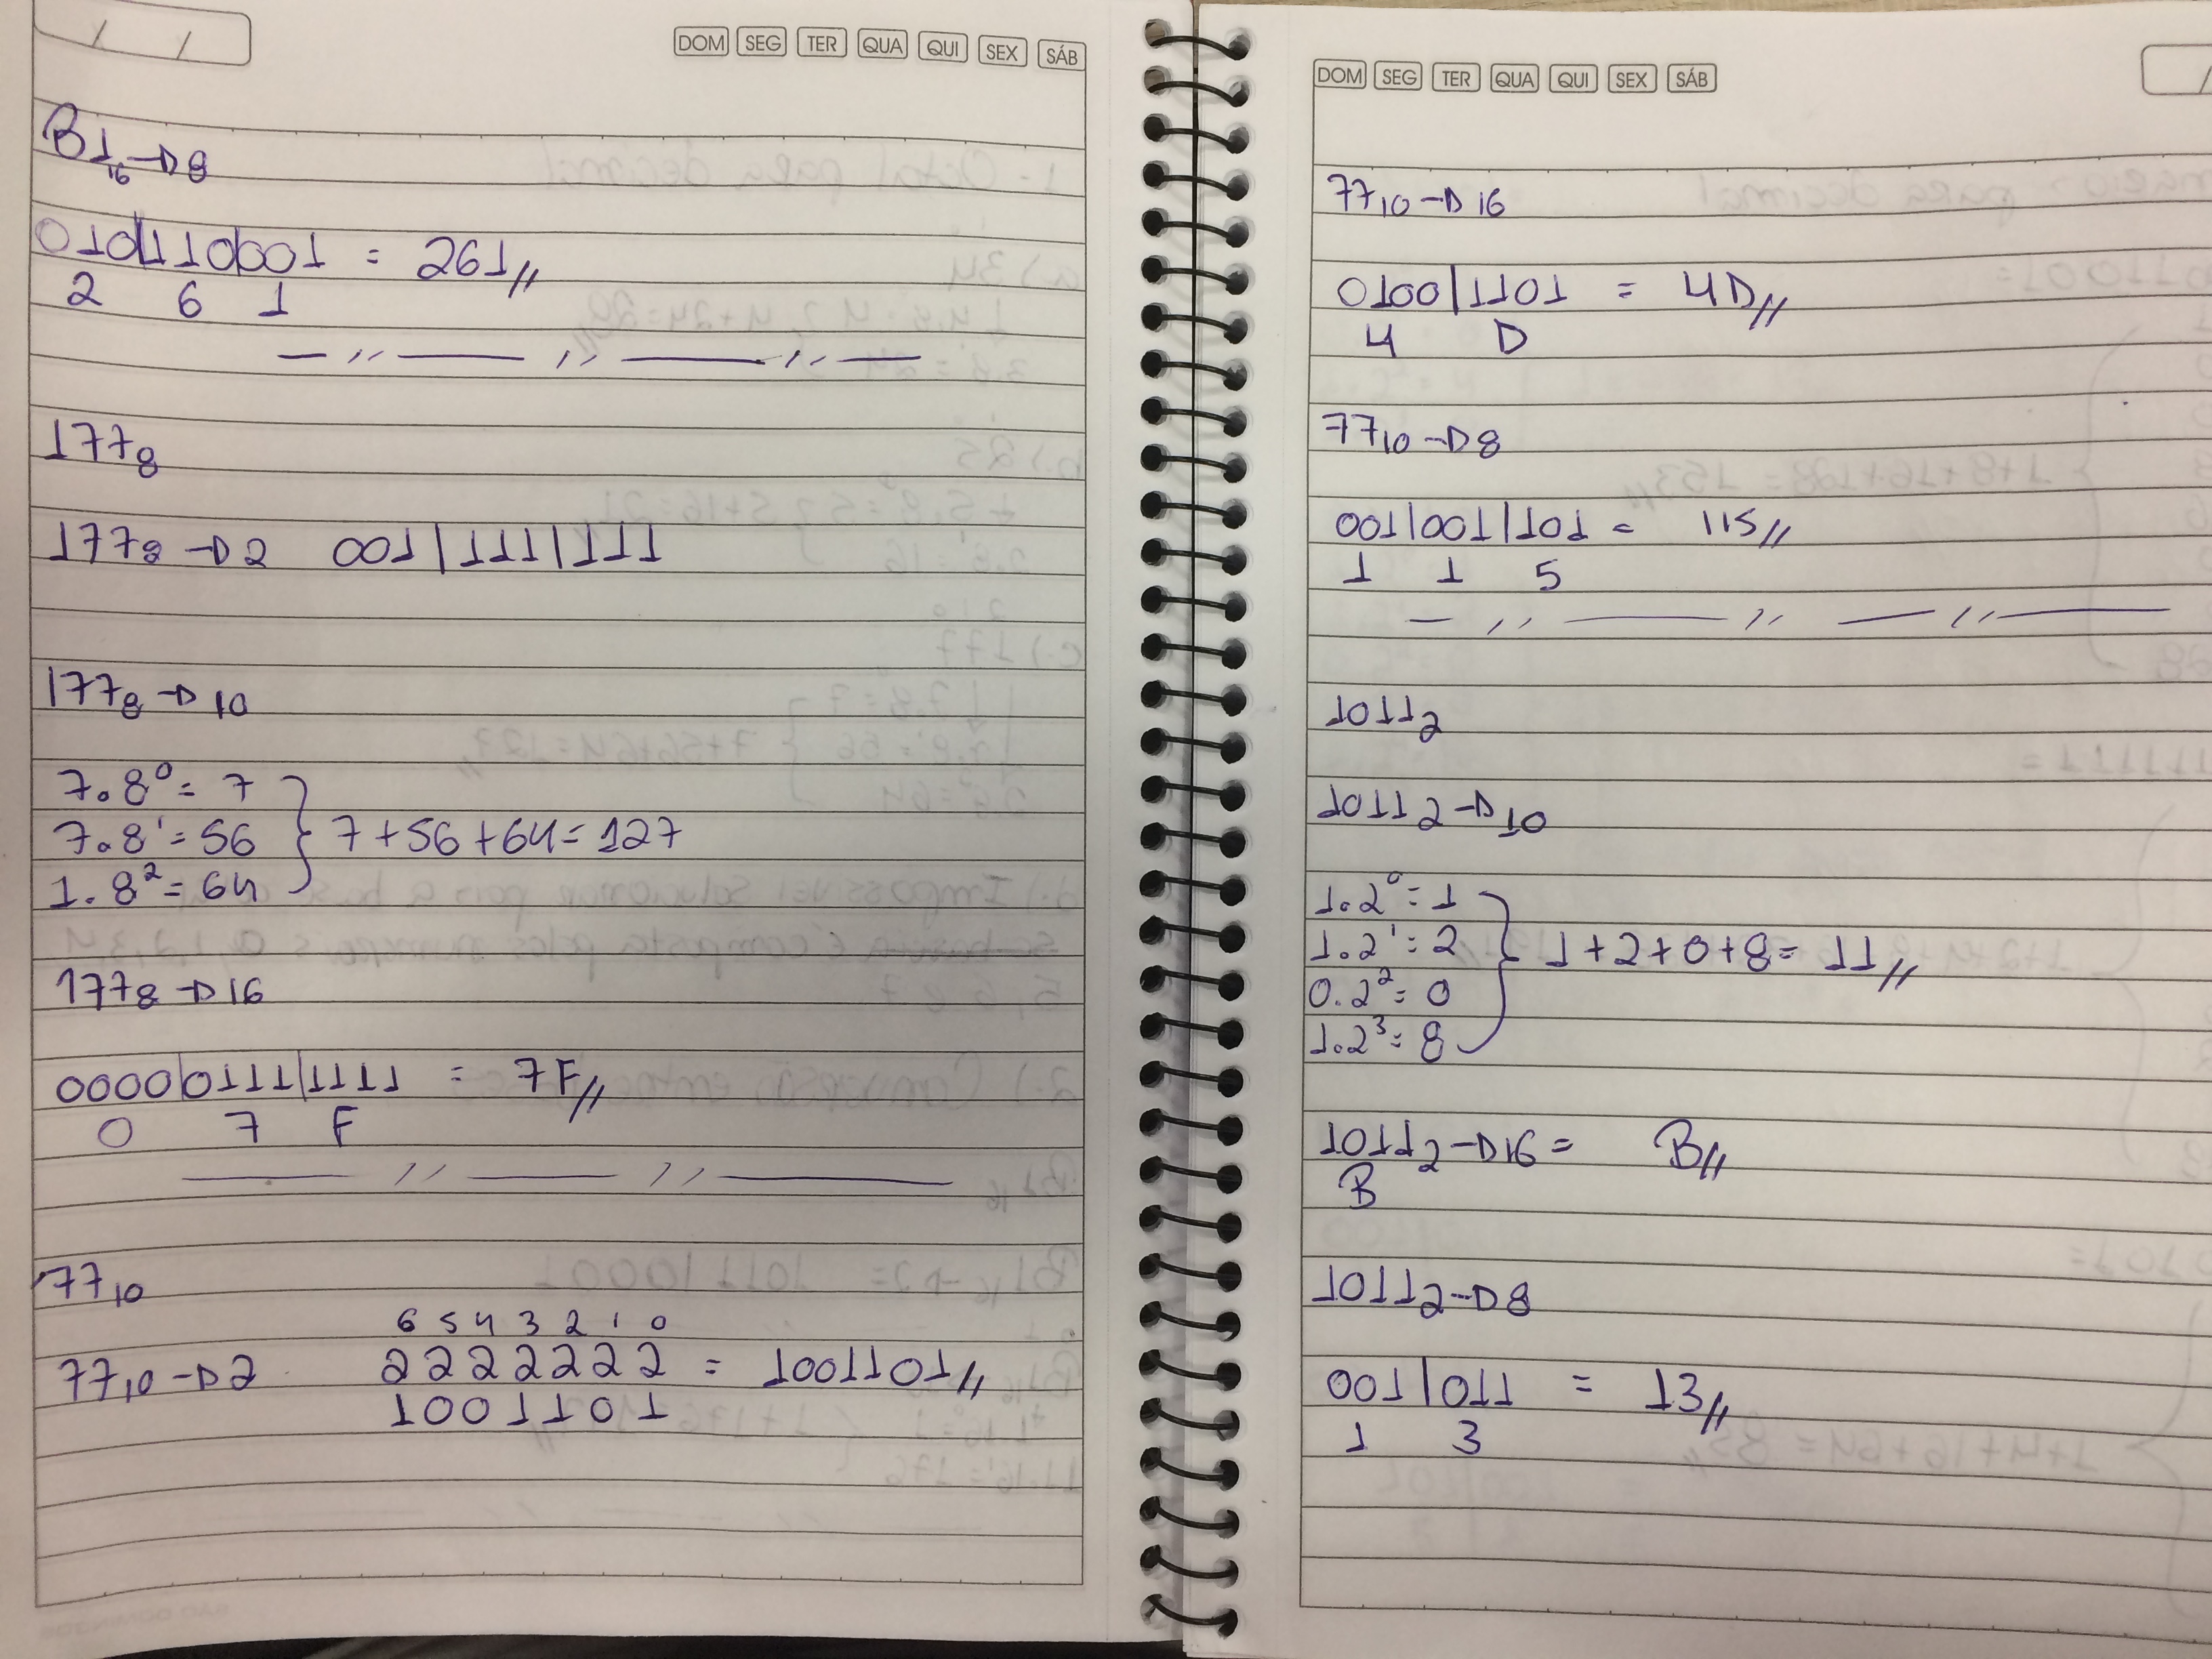 DOM SEG TER QUA QUI SEX SÁB
B1₁₆→8
010|110|001 = 261//
2 6 1
177₈
177₈→2 001|111|111
177₈→10
7.8⁰= 7
7.8¹= 56 } 7+56+64= 127
1.8²= 64
177₈→16
0000|0111|1111 = 7F//
0 7 F
77₁₀
6 5 4 3 2 1 0
77₁₀→2 2 2 2 2 2 2 2 = 1001101//
1 0 0 1 1 0 1
DOM SEG TER QUA QUI SEX SÁB
77₁₀→16
0100|1101 = 4D//
4 D
77₁₀→8
001|001|101 = 115//
1 1 5
1011₂
1011₂→10
1.2⁰= 1
1.2¹= 2 } 1+2+0+8= 11//
0.2²= 0
1.2³= 8
1011₂→16= B//
B
1011₂→8
001|011 = 13//
1 3